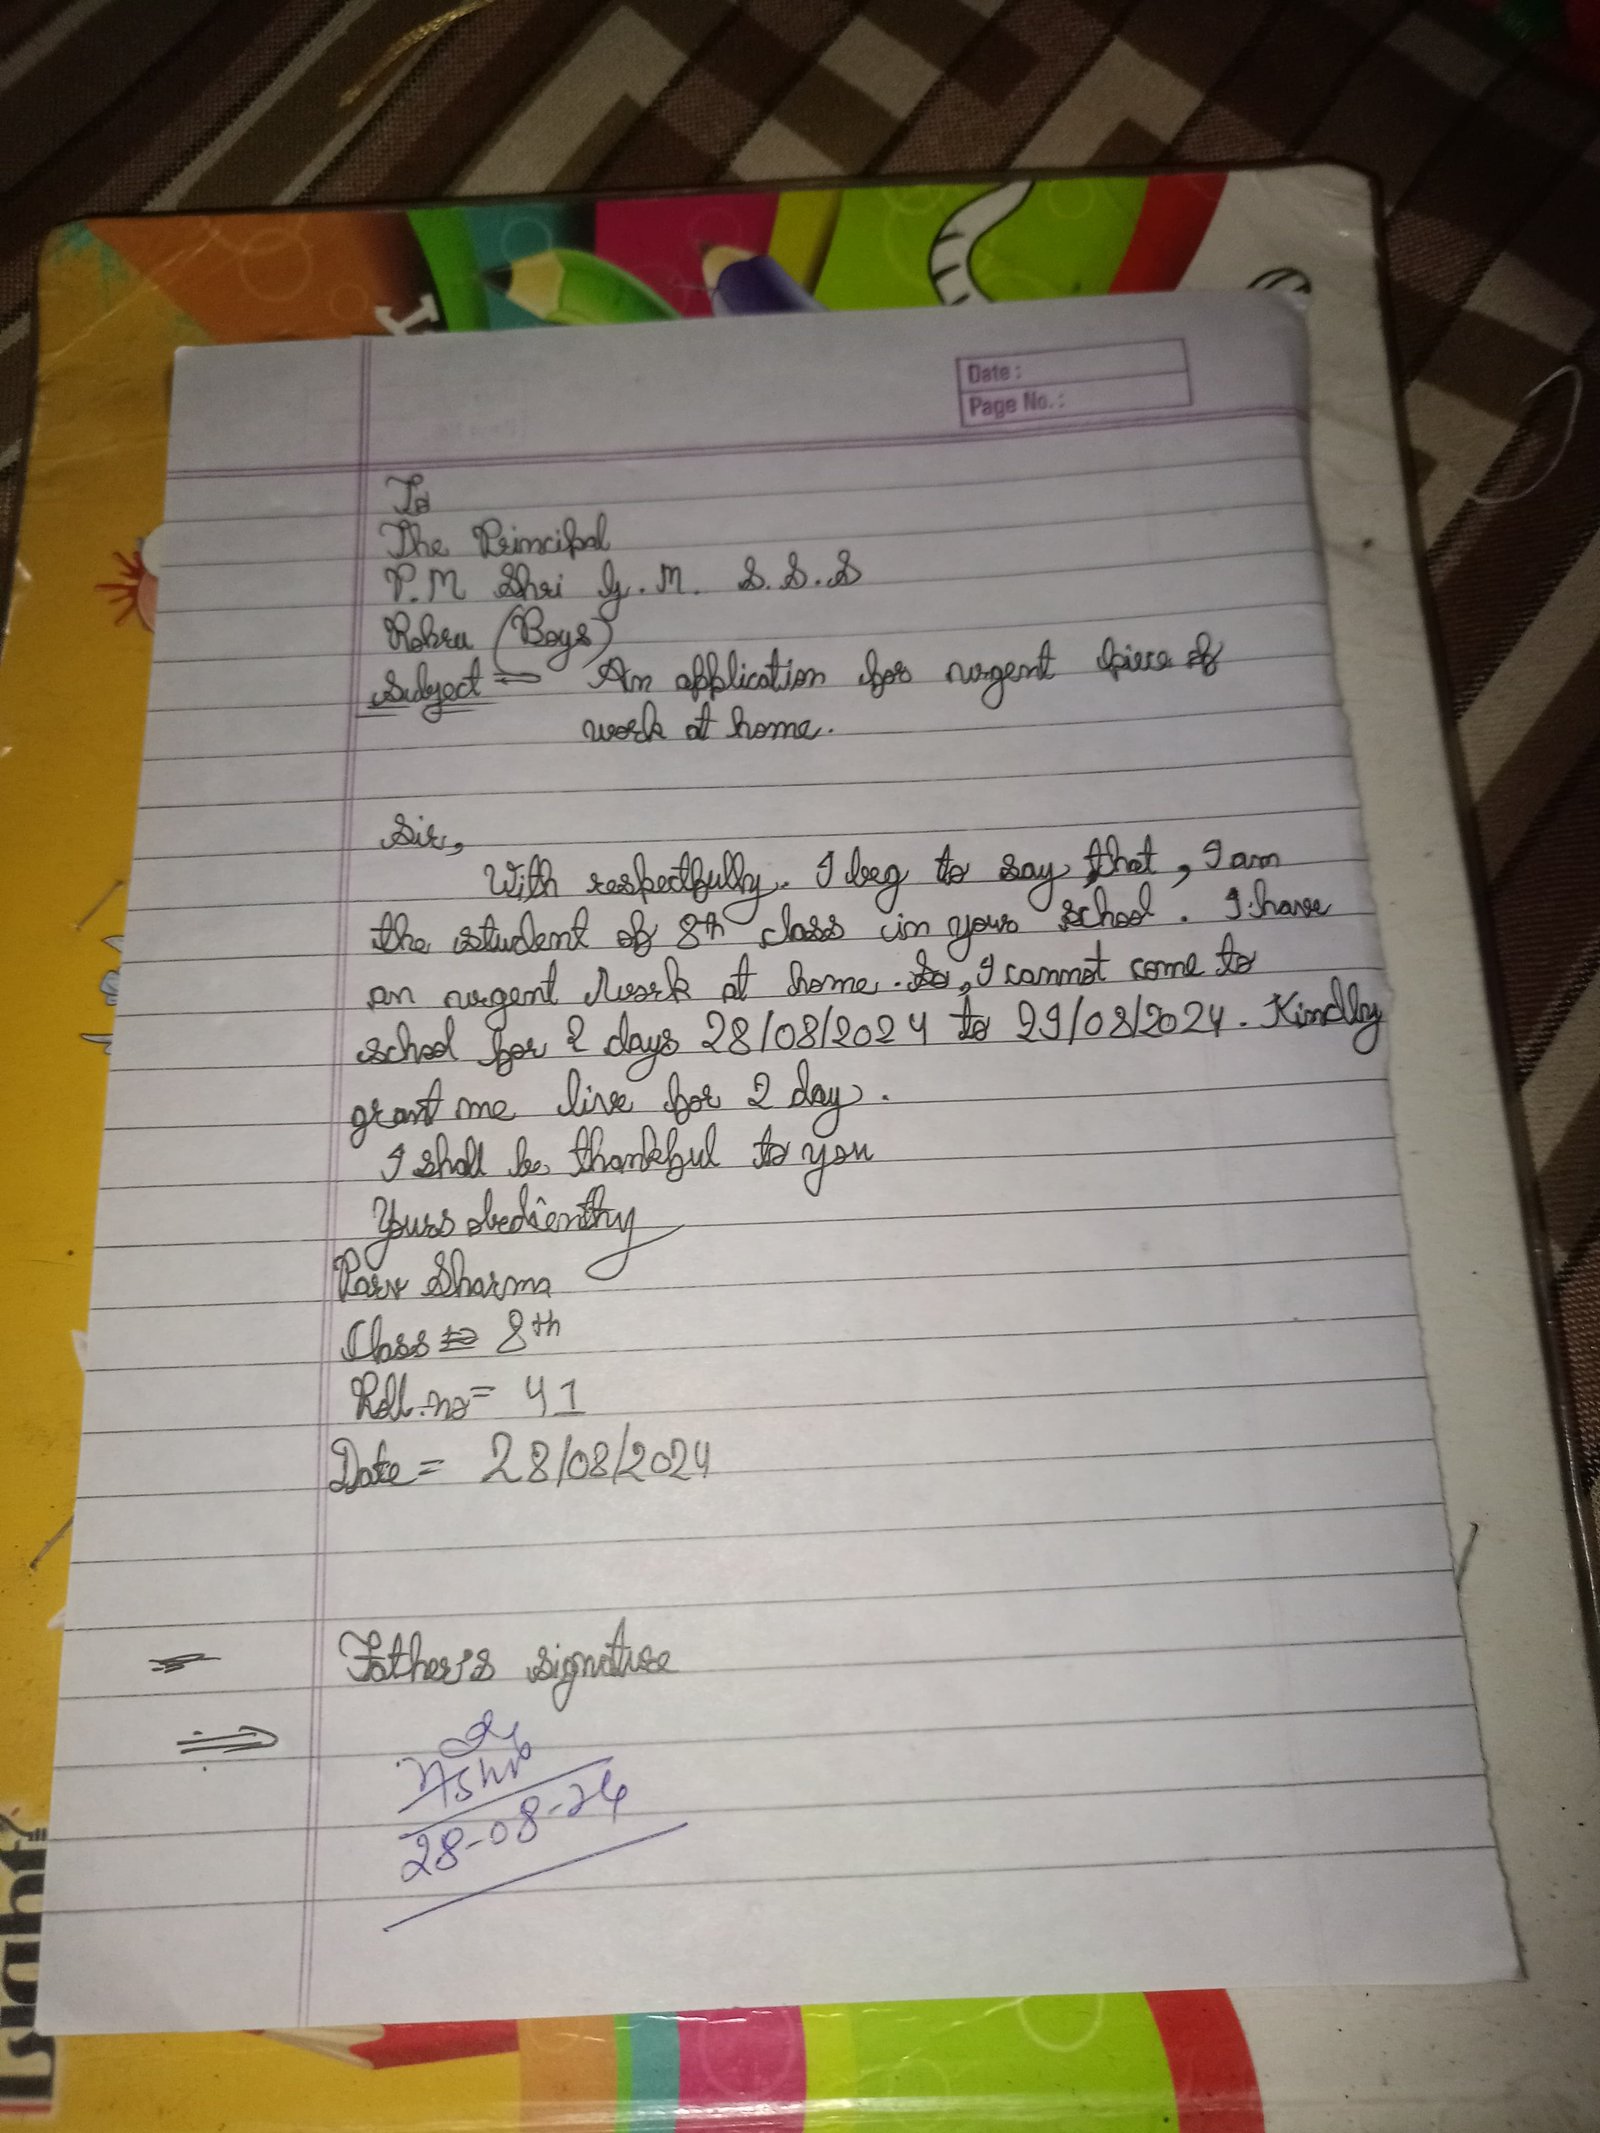 Date :
Page No. :
To
The Principal
P.M Shri G.M. S.S.S
Rohru (Boys)
Subject = An application for urgent piece of
work at home.
Sir,
With respectfully. I beg to say that, I am
the student of 8th class in your school. I have
an urgent work at home. So, I cannot come to
school for 2 days 28/08/2024 to 29/08/2024. Kindly
grant me live for 2 day.
I shall be thankful to you
Yours obediently
Parv Sharma
Class = 8th
Roll.no = 41
Date = 28/08/2024
Father's signature
28-08-24